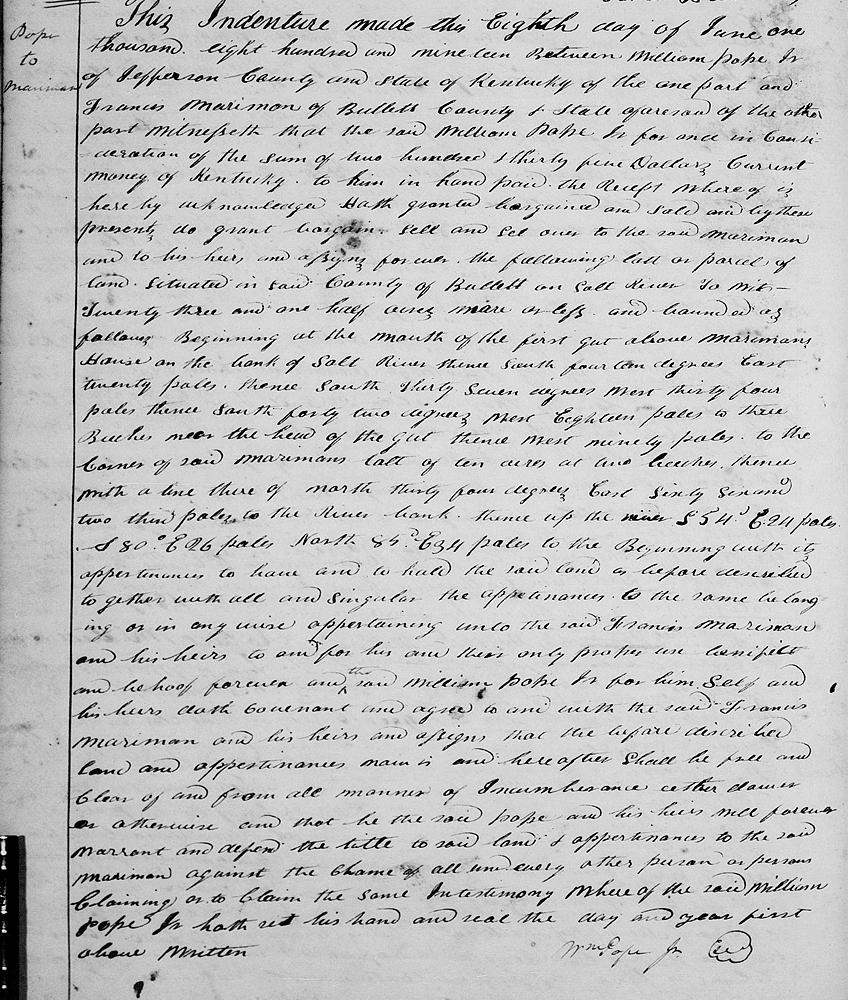 Pope
to
Mariman
This Indenture made this Eighth day of June one
thousand eight hundred and nineteen Between William Pope Jr
of Jefferson County and State of Kentucky of the one part and
Francis Marimon of Bullett County & State aforesaid of the other
part Witnesseth that the said William Pope Jr for and in Consi-
-deration of the sum of two hundred & thirty five Dollars Current
money of Kentucky to him in hand paid the Recept Whereof is
hereby acknowledged Hath granted bargained and Sold and by these
presents do grant bargain Sell and Set over to the said Mariman
and to his heirs and assigns forever the following lott or parcel of
land Situated in said County of Bullett on Salt River To Wit-
Twenty three and one half acres more or less and bounded as
follows Beginning at the mouth of the first gut above Marimans
House on the bank of Salt River thence South fourteen degrees East
twenty poles thence South Thirty Seven degrees West thirty four
poles thence South forty two degrees West Eighteen poles to three
Beeches near the head of the gut thence West ninety poles to the
Corner of said Marimans lott of ten acres at two beeches thence
with a line there of north thirty four degrees East Sixty Six and
two third poles to the River bank thence up the river S 54° E 24 poles
S 80° E 26 poles North 85° E 34 poles to the Beginning with its
appertinances to have and to hold the said land as before described
to gether with all and Singular the appertinances to the same belong
ing or in any wise appertaining unto the said Francis Mariman
and his heirs to and for his and their only proper use benifitt
and behoof forever and the said William Pope Jr for him Self and
his heirs doth Covenant and agree to and with the said Francis
Mariman and his heirs and assigns that the before described
land and appertinances now is and hereafter Shall be free and
Clear of and from all manner of Incumberance either dower
or otherwise and that he the said Pope and his heirs will forever
Warrant and defend the title to said land & appertinances to the said
Mariman against the Clame of all and every other person or persons
Claiming or to Claim the Same In testimony Whereof the said William
Pope Jr hath set his hand and seal the day and year first
above Written
Wm Pope Jr